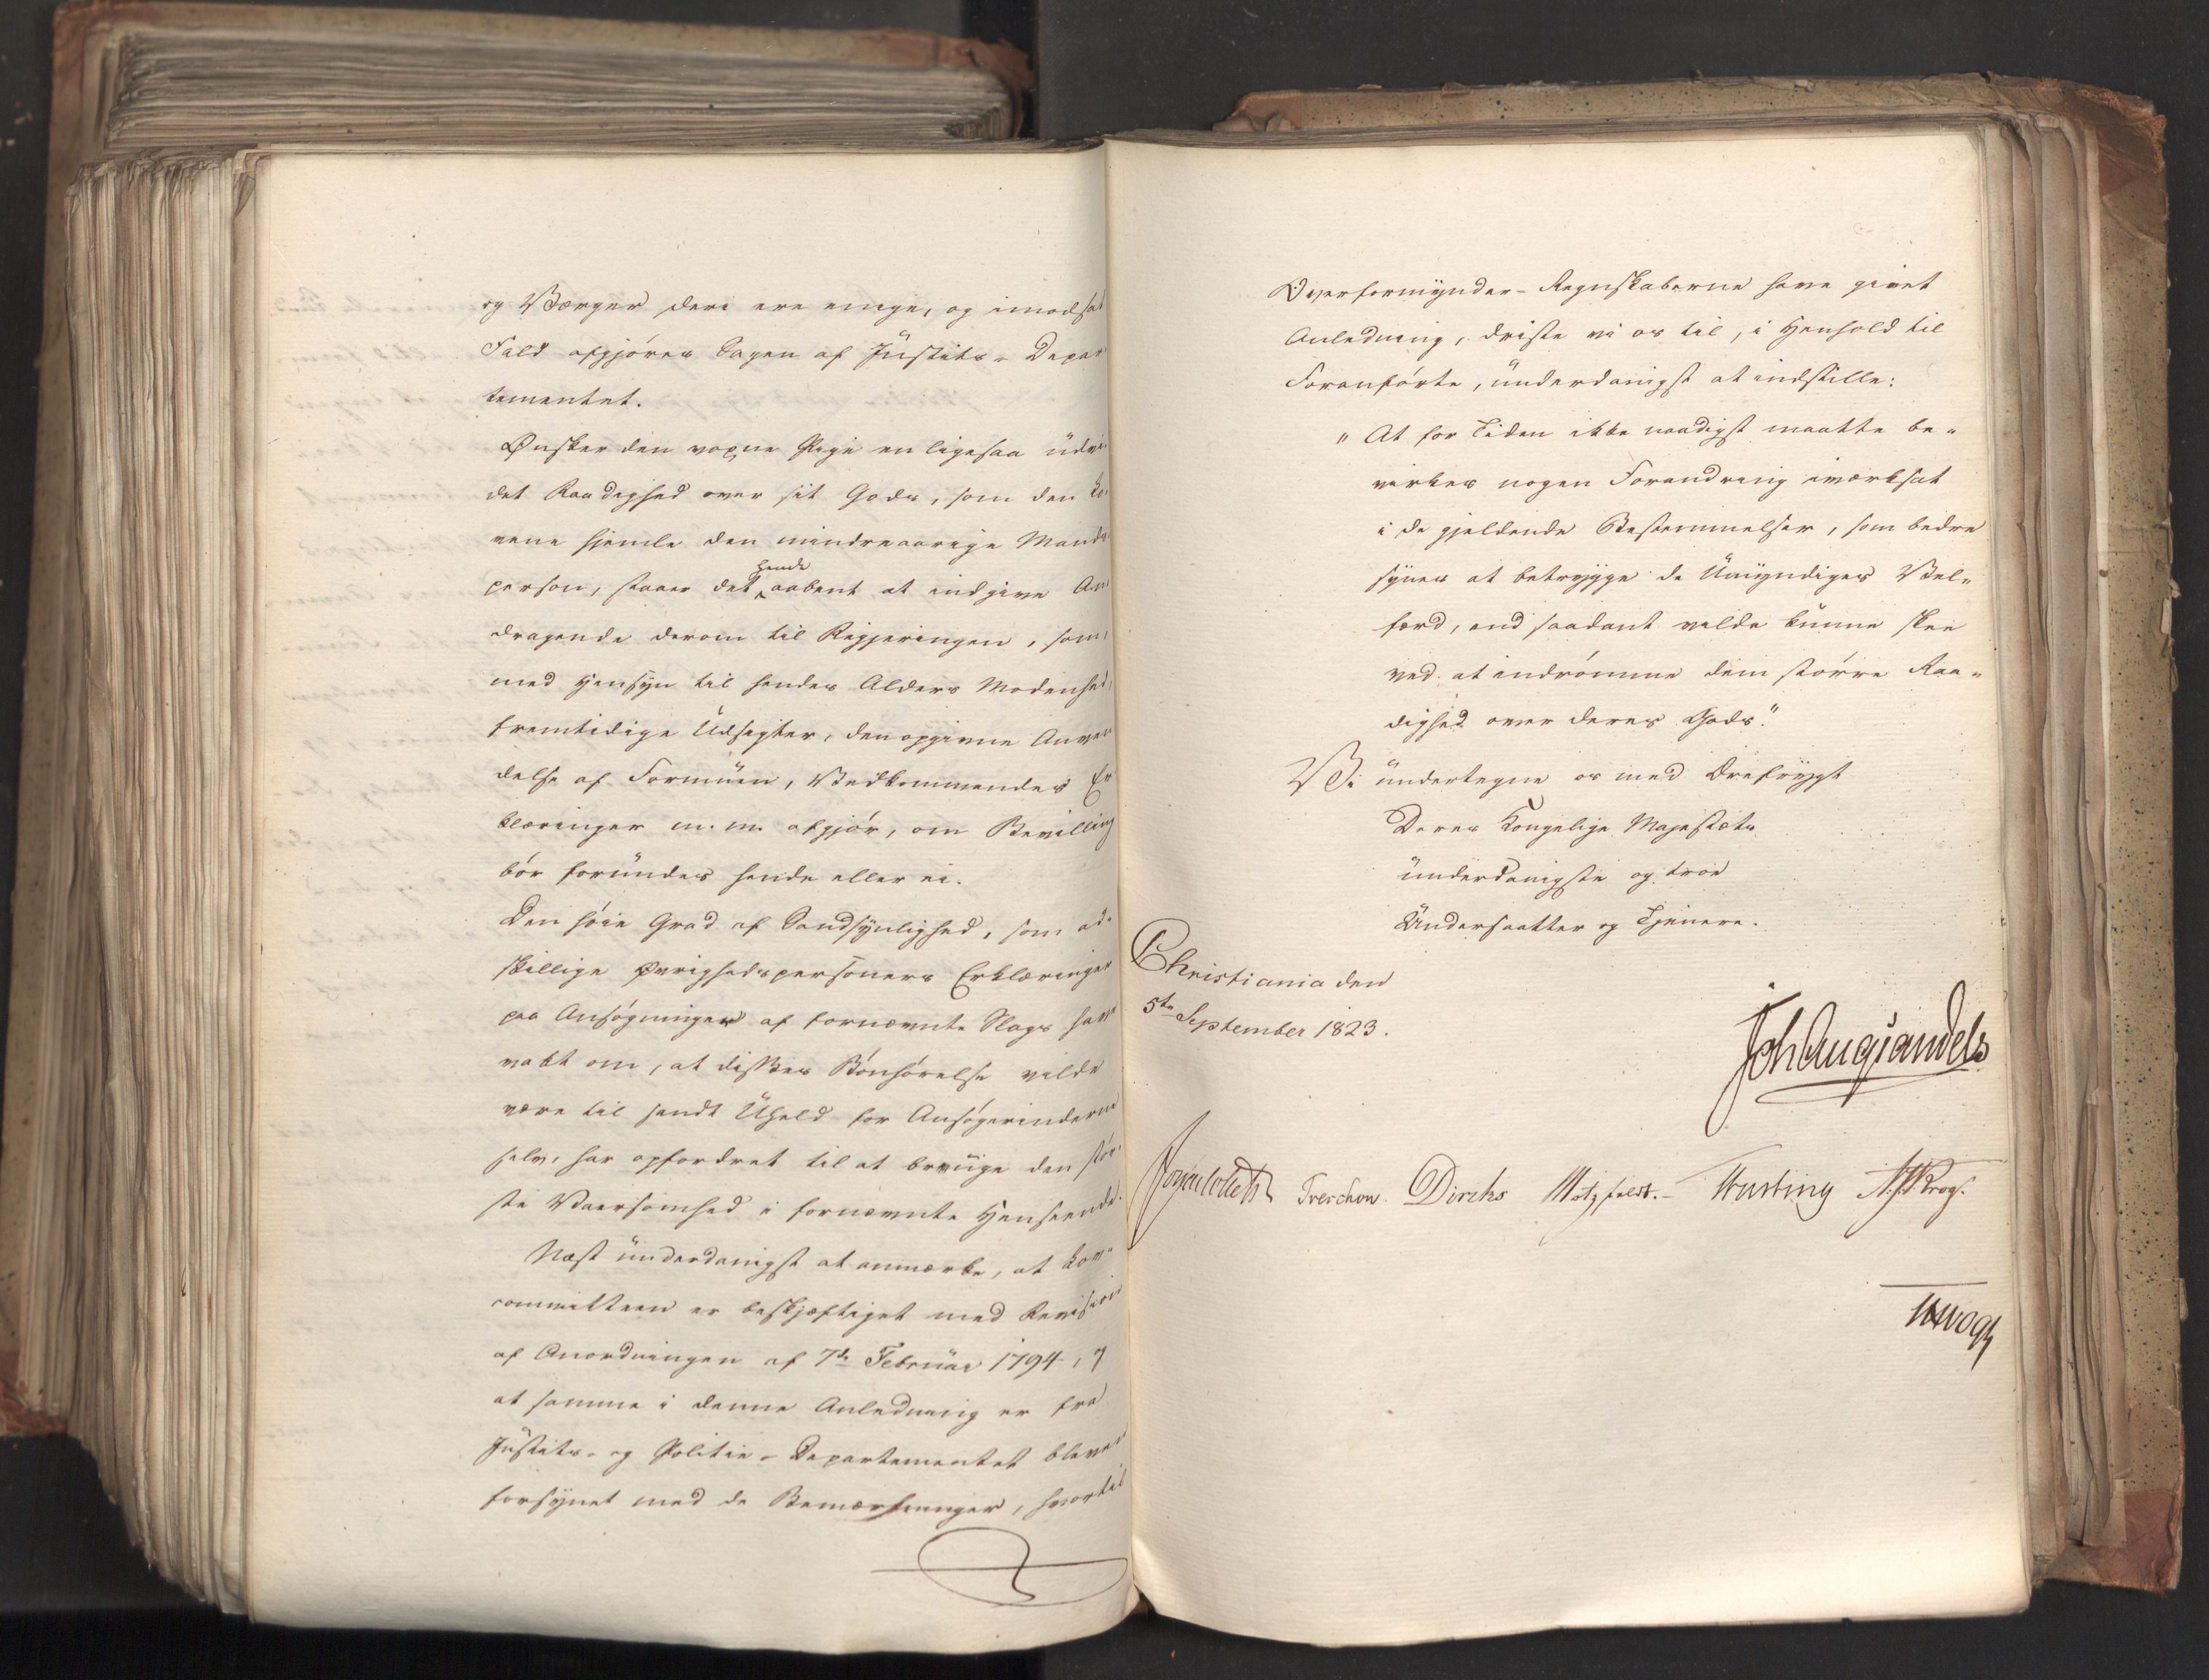 og Værger deri ere enige, og i modsat
Fald afgjøres Sagen af Justits-Depar
tementet.
Ønsker den voxne Pige en ligesaa udvi
det Raadighed over sit Gods, som den Lo
vene hjemle den mindreaarige Mands
person, staaer det hende aabent at indgive An
dragende derom til Regjeringen, som,
med Hensyn til hendes Alders Modenhed,
fremtidige Udsigter, den opgivne Anven
delse af Formuen, Vedkommendes Er
klæringer m. m. afgjør, om Bevilling
bør forundes hende eller ei.
Den høie Grad af Sandsynlighed, som ad-
skillige Øvrighedspersoners Erklæringer
paa Ansøgninger af fornævnte Slags have
vakt om, at disses Bønhørelse vilde
være til sandt Uheld for Ansøgerinderne
selv, har opfordret til at bruge den stør-
ste Varsomhed i fornævnte Henseende.
Næst underdanigst at anmærke, at Lov-
committeen er beskjæftiget med Revision
af Anordningen af 7de Februar 1794, og
at samme i denne Anledning er fra
Justits- og Politie-Departementet bleven
forsynet med de Bemærkninger, hvortil
Overformynder-Regnskaberne have givet
Anledning, driste vi os til, i Henhold til
Foranførte, underdanigst at indstille:
"At for Tiden ikke naadigst maatte be-
virkes nogen Forandring iværksat
i de gjeldende Bestemmelser, som bedre
synes at betrygge de Umyndiges Vel-
færd, end saadant vilde kunne skee
ved at indrømme dem større Raa-
dighed over deres Gods."
Vi undertegne os med Ærefrygt
Deres Kongelige Majestæts
underdanigste og troe
Undersaatter og Tjenere.
Christiania den
5te September 1823.
Joh Aug Sandels
Jonas Collett Treschow. Diriks Motzfeldt. Krog.